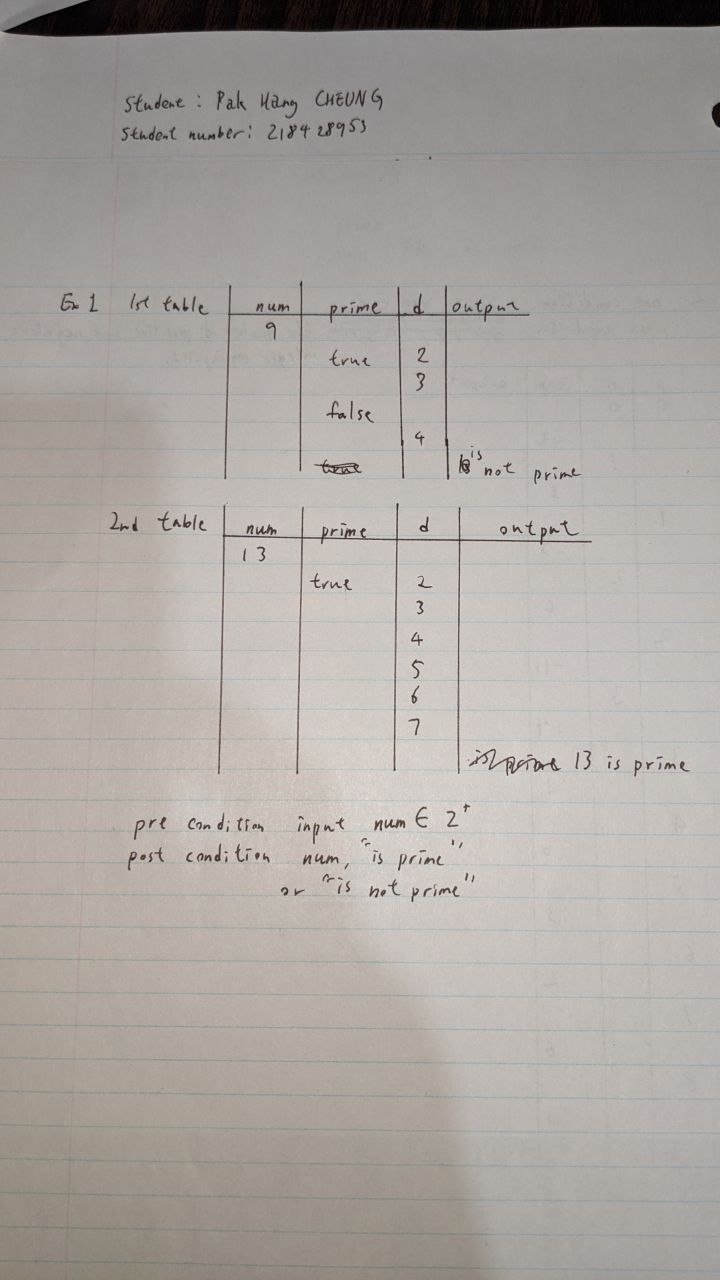 Student : Pak Hang CHEUNG
Student number: 218428953
Ex 1 1st table num prime d output
9
true 2
3
false
4
is not prime
2nd table num prime d output
13
true 2
3
4
5
6
7
13 is prime
pre condition input num ∈ Z+
post condition num, "is prime",
or "is not prime"